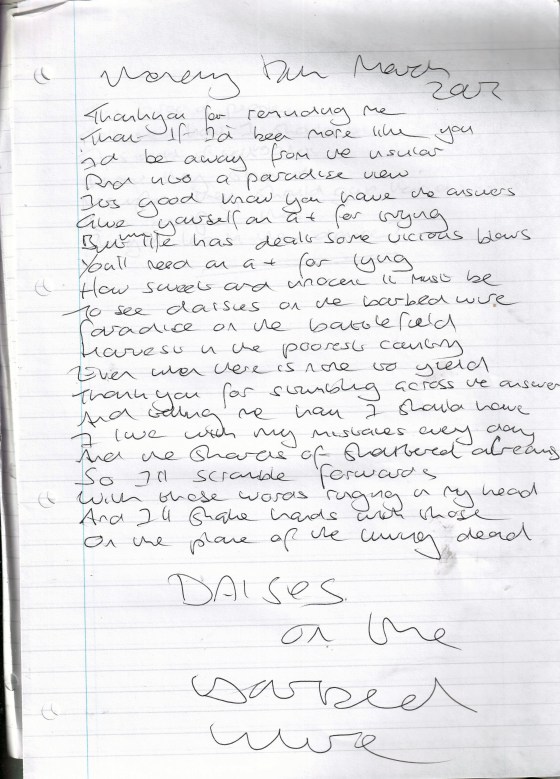 March
2002
Thankyou for reminding me
That If I'd been more like you
I'd be away from the usual
And into a paradise view
Its good know you have the answers
Give yourself an a+ for trying
But when life has dealt some vicious blows
Youll need an a+ for lying
How sweet and innocent it must be
To see daisies on the barbed wire
Paradise on the battlefield
Harvest in the poorest country
Even when there is none to yield
Thank you for stumbling across the answer
And telling me how I should have
I live with my mistakes every day
And the shards of shattered already
So I'll scramble forwards
With those words ringing in my head
And I'll shake hands with those
On the plane of the living dead
DAISES
on the
Barbed
Wire